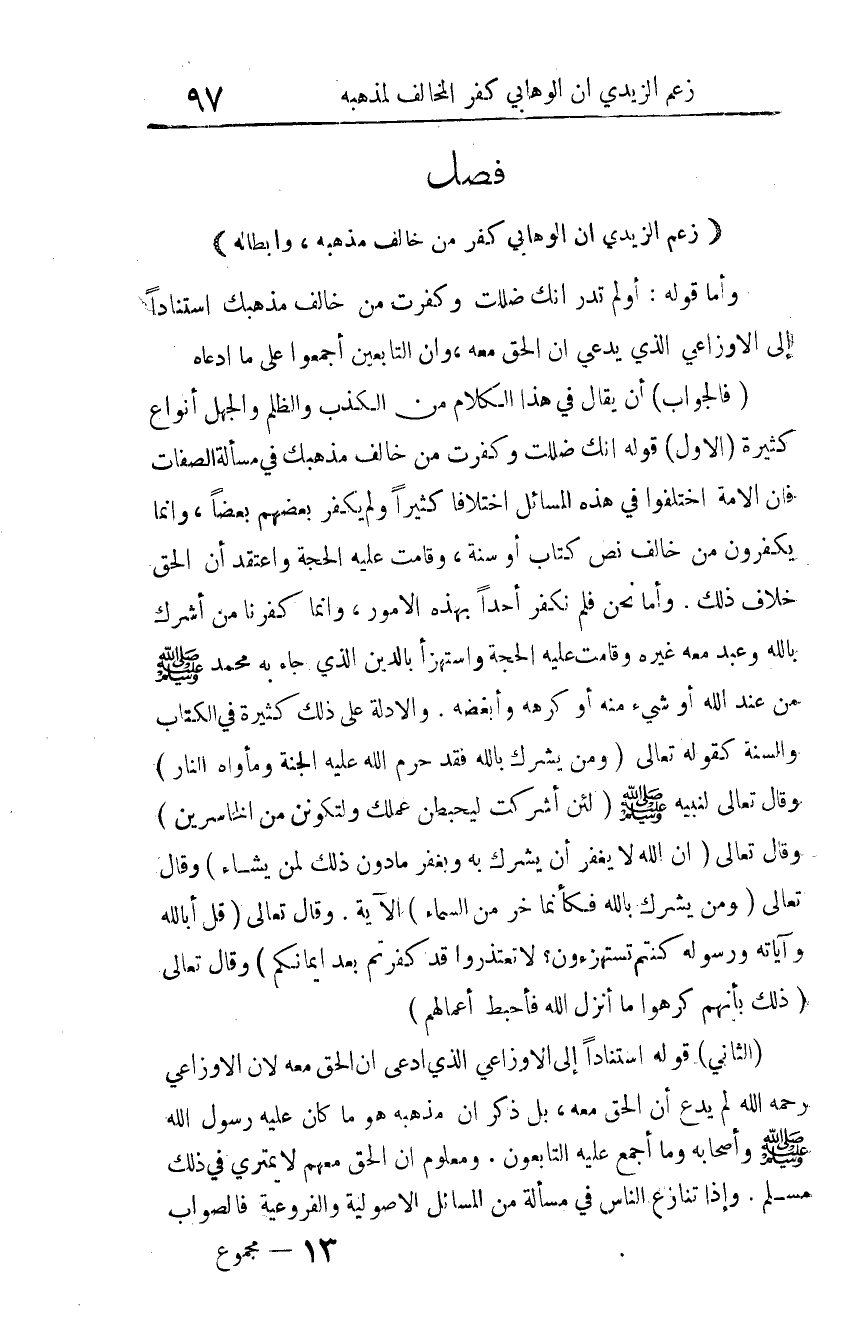 زعم الزيدي ان الوهابي كفر المخالف لمذهبه ٩٧
فصل
( زعم الزيدي ان الوهابي كفر من خالف مذهبه ، وابطاله )
وأما قوله : أولم تدر انك ضللت وكفرت من خالف مذهبك استناداً
إلى الاوزاعي الذي يدعي ان الحق معه ، وان التابعين أجمعوا على ما ادعاه
( فالجواب ) أن يقال في هذا الكلام من الكذب والظلم والجهل أنواع
كثيرة (الاول) قوله انك ضللت وكفرت من خالف مذهبك في مسألة الصفات
فان الامة اختلفوا في هذه المسائل اختلافا كثيراً ولم يكفر بعضهم بعضاً ، وانما
يكفرون من خالف نص كتاب أو سنة ، وقامت عليه الحجة واعتقد أن الحق
خلاف ذلك . وأما نحن فلم نكفر أحداً بهذه الامور ، وانما كفرنا من أشرك
بالله وعبد معه غيره وقامت عليه الحجة واستهزأ بالدين الذي جاء به محمد ﷺ
من عند الله أو شيء منه أو كرهه وأبغضه . والادلة على ذلك كثيرة في الكتاب
والسنة كقوله تعالى ( ومن يشرك بالله فقد حرم الله عليه الجنة ومأواه النار )
وقال تعالى لنبيه ﷺ ( لئن أشركت ليحبطن عملك ولتكونن من الخاسرين )
وقال تعالى ( ان الله لا يغفر أن يشرك به ويغفر مادون ذلك لمن يشاء ) وقال
تعالى ( ومن يشرك بالله فكأنما خر من السماء ) الآية . وقال تعالى ( قل أبالله
وآياته ورسوله كنتم تستهزءون؟ لا تعتذروا قد كفرتم بعد ايمانكم ) وقال تعالى
( ذلك بأنهم كرهوا ما أنزل الله فأحبط أعمالهم )
(الثاني) قوله استناداً إلى الاوزاعي الذي ادعى ان الحق معه لان الاوزاعي
رحمه الله لم يدع أن الحق معه ، بل ذكر ان مذهبه هو ما كان عليه رسول الله
ﷺ وأصحابه وما أجمع عليه التابعون . ومعلوم ان الحق معهم لا يمتري في ذلك
مسلم . وإذا تنازع الناس في مسألة من المسائل الاصولية والفروعية فالصواب
١٣ — مجموع